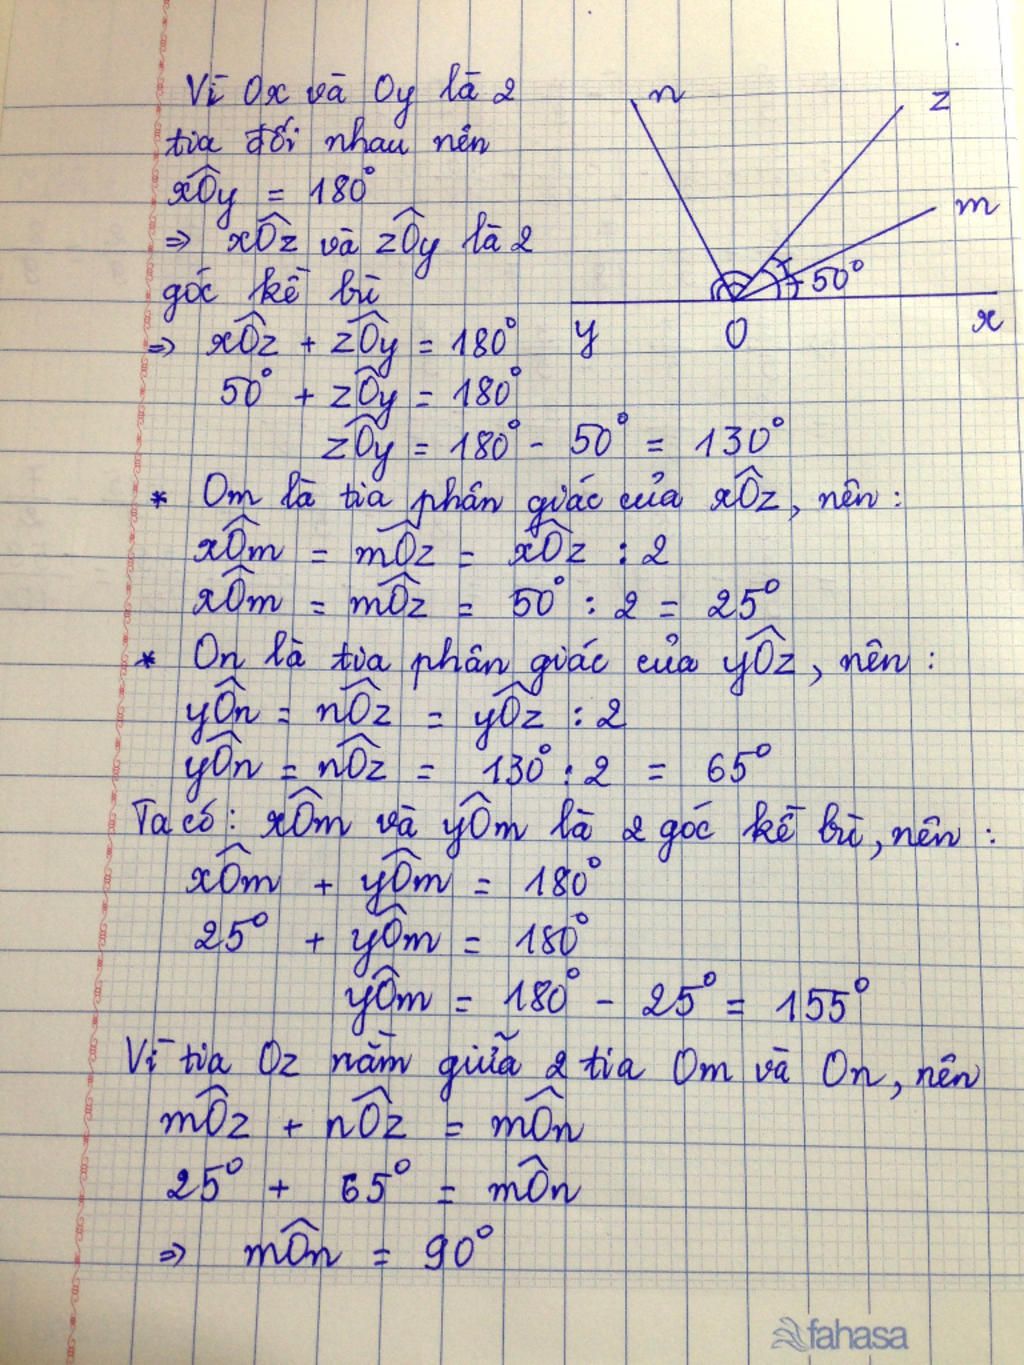 Vì Ox và Oy là 2
tia đối nhau nên
xÔy = 180°
⇒ xÔz và zÔy là 2
góc kề bù
⇒ xÔz + zÔy = 180°
50° + zÔy = 180°
zÔy = 180° - 50° = 130°
n
z
m
50°
y
O
x
* Om là tia phân giác của xÔz, nên :
xÔm = mÔz = xÔz : 2
xÔm = mÔz = 50° : 2 = 25°
* On là tia phân giác của yÔz, nên :
yÔn = nÔz = yÔz : 2
yÔn = nÔz = 130° : 2 = 65°
Ta có : xÔm và yÔm là 2 góc kề bù, nên :
xÔm + yÔm = 180°
25° + yÔm = 180°
yÔm = 180° - 25° = 155°
Vì tia Oz nằm giữa 2 tia Om và On, nên
mÔz + nÔz = mÔn
25° + 65° = mÔn
⇒ mÔn = 90°
fahasa